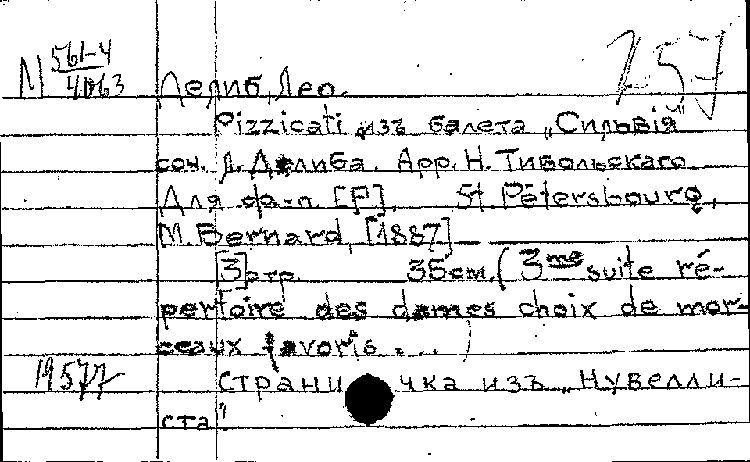 М 561-4
4063
Делиб, Лео.
Pizzicati изъ балета „Сильвiя"
соч. Л. Делиба. Арр. Н. Тивольскаго
Для ф-п. [F]. St. Pétersbourg,
M. Bernard, [1887]
[3] стр. 35 см. (3me suite ré-
pertoire des dames choix de mor-
ceaux favoris ... )
19577
Страничка изъ „Нувелли-
ста"